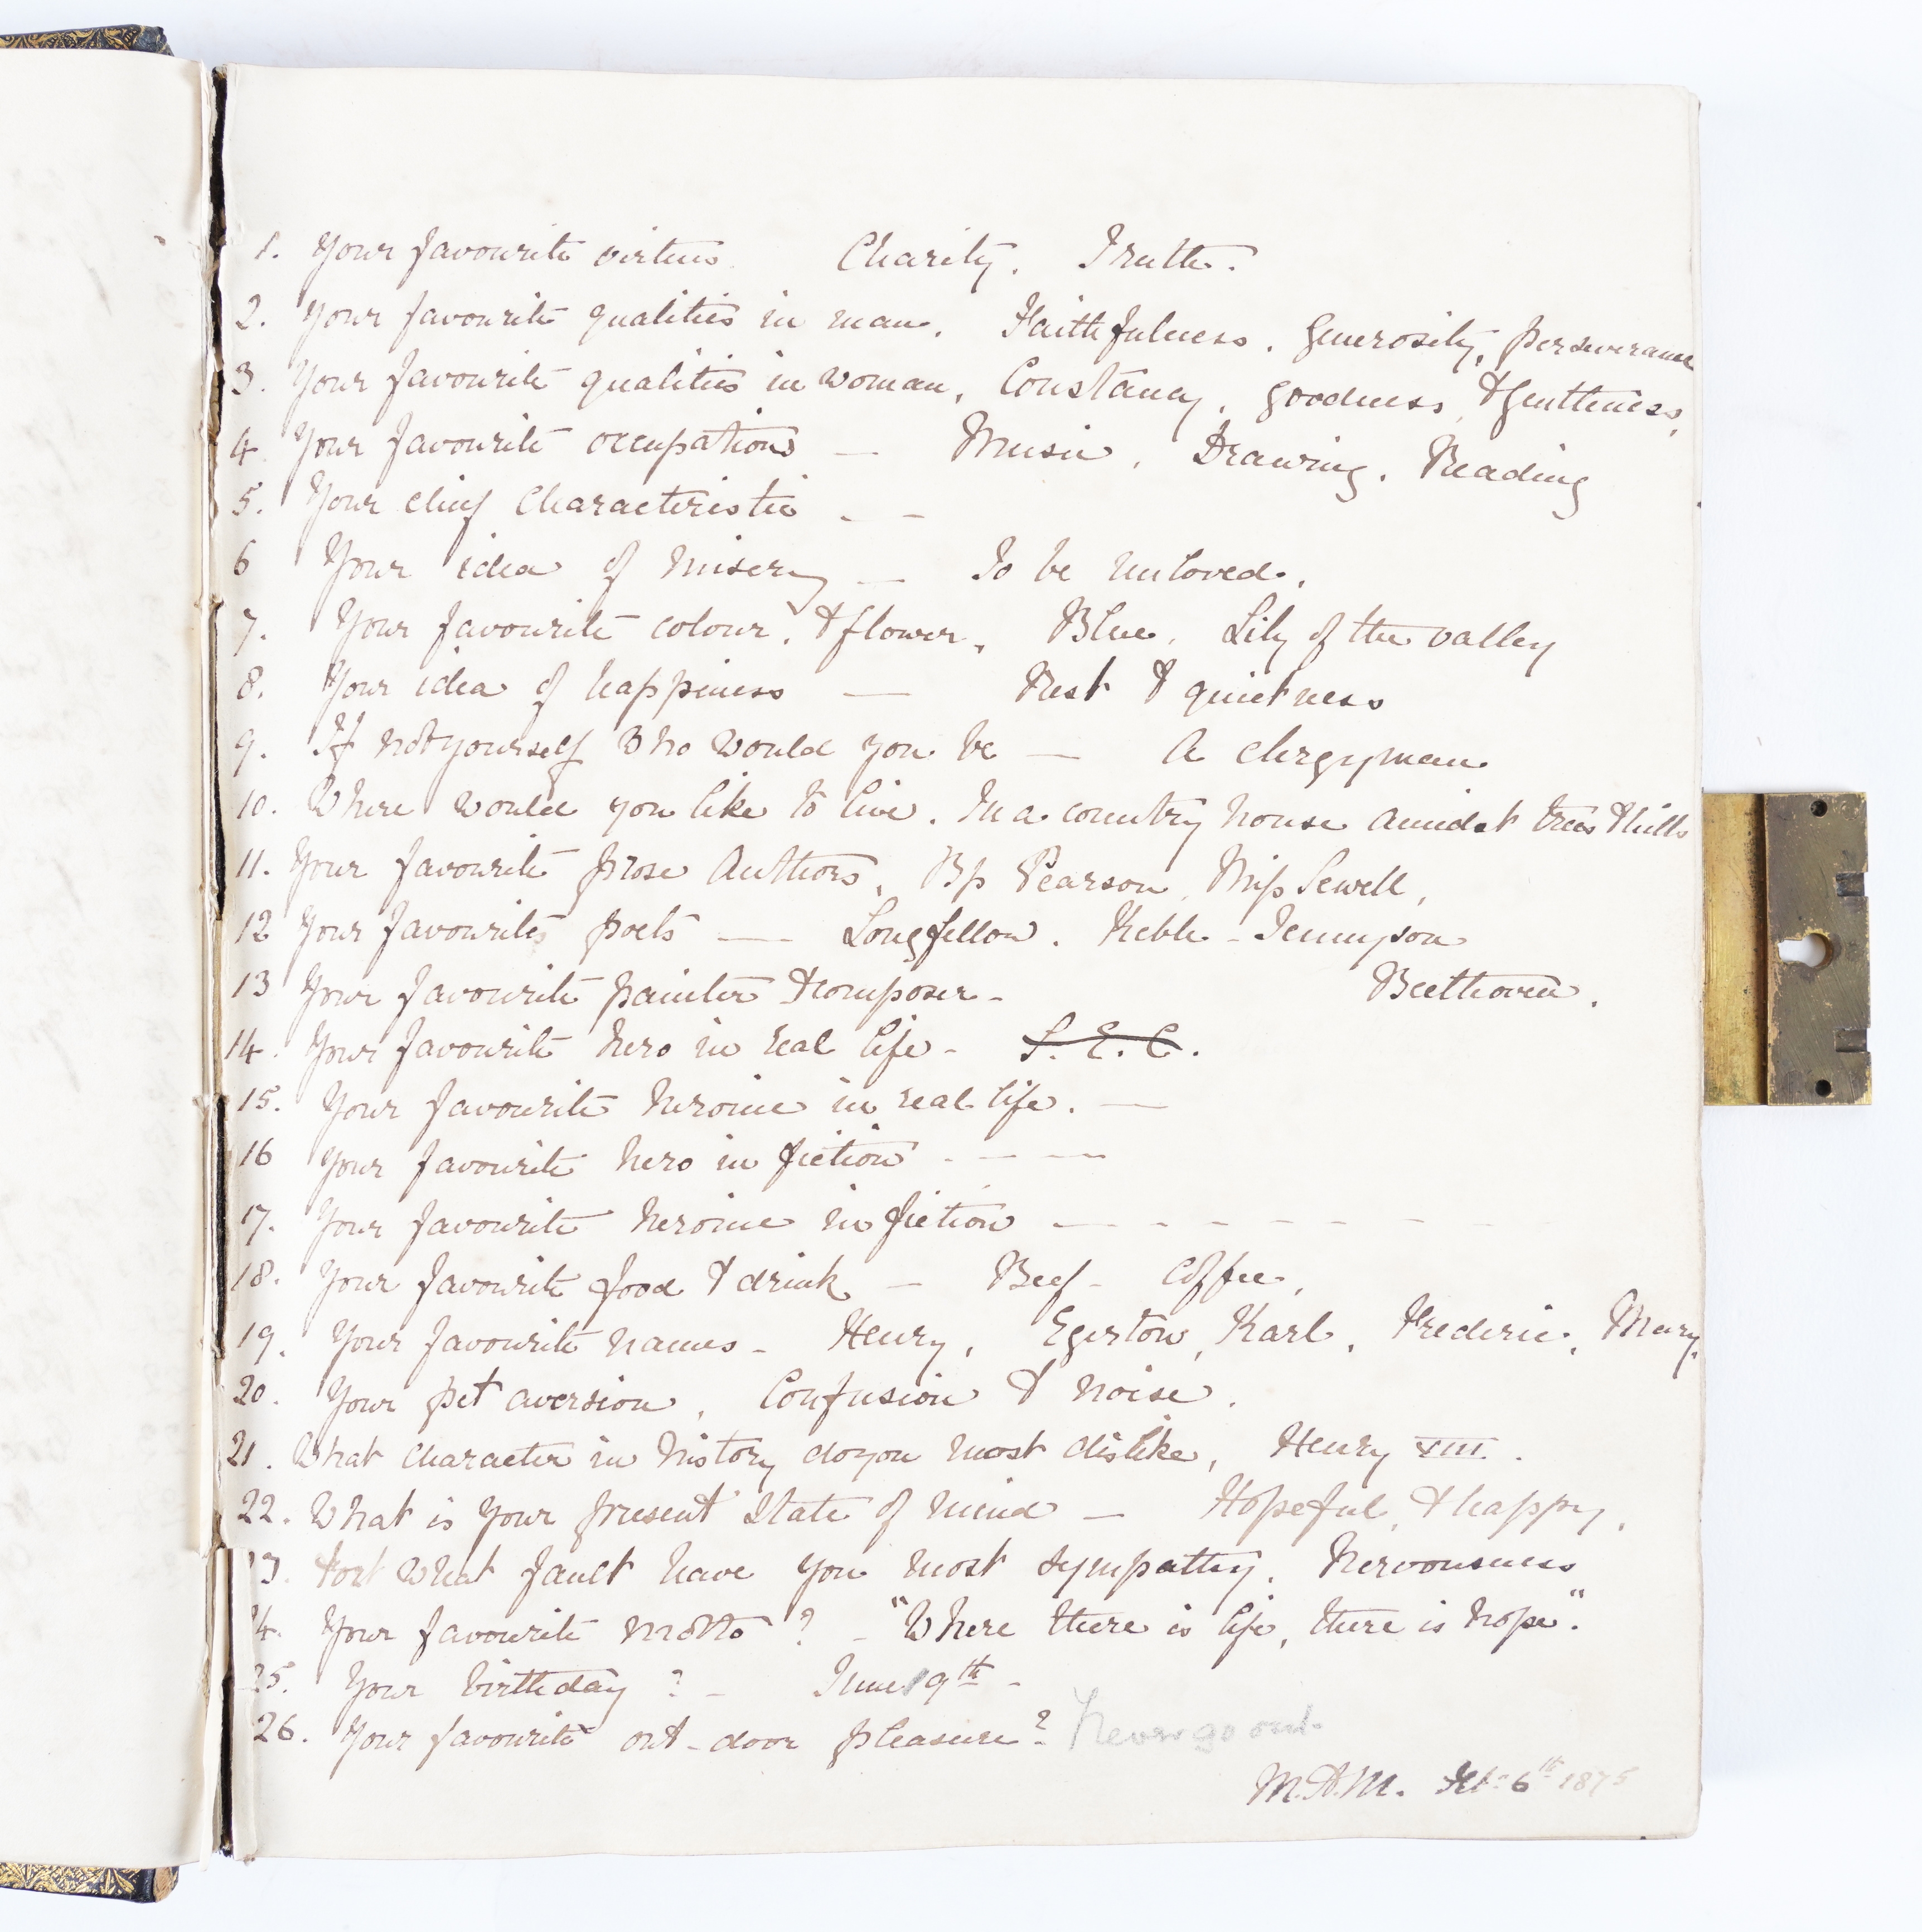 1. Your favourite virtues. Charity. Truth.
2. Your favourite qualities in man. Faithfulness. Generosity, perseverance
3. Your favourite qualities in woman. Constancy, goodness, & gentleness,
4. Your favourite occupations — Music, Drawing. Reading
5. Your chief Characteristic — —
6 Your idea of misery — To be unloved.
7. Your favourite colour, & flower, Blue. Lily of the valley
8. Your idea of happiness — Rest & quietness
9. If not yourself who would you be — A clergyman
10. Where would you like to live. In a country house amidst trees & hills
11. Your favourite prose Authors, Bp Pearson, Miss Sewell,
12 Your favourite poets — Longfellow. Keble - Tennyson
13 Your favourite painter & composer - Beethoven.
14. Your favourite hero in real life - S. E. C.
15. Your favourite heroine in real life. —
16 Your favourite hero in fiction - — —
17. Your favourite heroine in fiction — - - - - - - -
18. Your favourite food & drink — Beef - Coffee,
19. Your favourite names - Henry, Egerton, Karl, Frederic, Mary.
20. Your pet aversion, Confusion & noise.
21. What character in history do you most dislike, Henry VIII.
22. What is your present state of mind — Hopeful, & happy,
3. For what fault have you most sympathy. Nervousness
4. Your favourite motto? - "Where there is life, there is hope".
25. Your birthday? - June 19th -
26. Your favourite out-door pleasure? Never go out.
M.A.M. Feb: 6th 1875